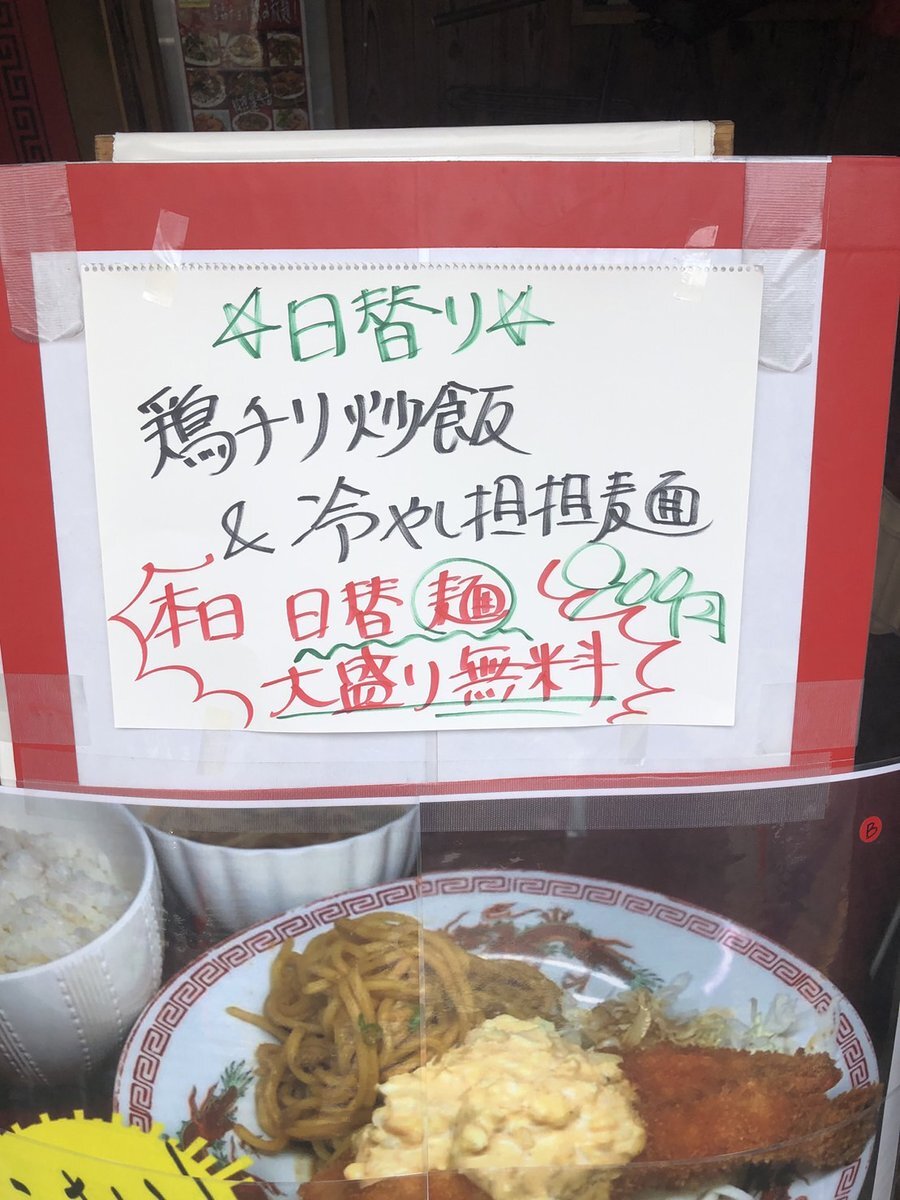 ☆日替り☆
鶏チリ炒飯
& 冷やし担担麺
900円
本日 日替麺
大盛り無料
B